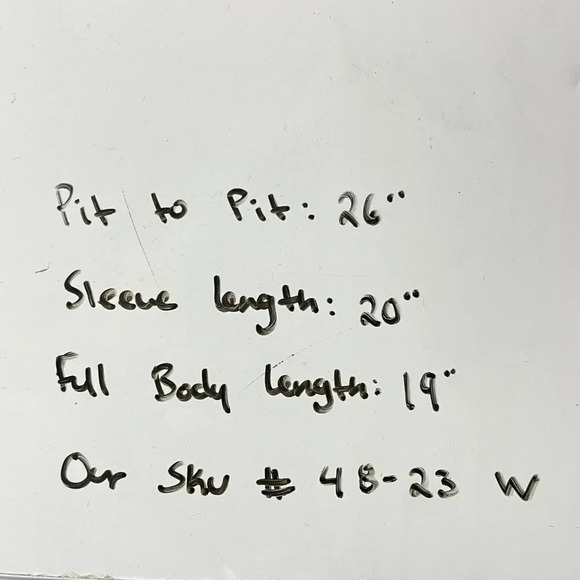 Pit to Pit: 26"
Sleeve length: 20"
Full Body Length: 19"
Our Sku # 48-23 W